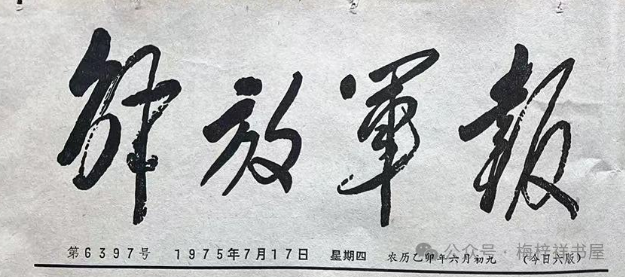 解放军報
第6397号 1975年7月17日 星期四 农历乙卯年六月初九 (今日六版)
公众号·梅梓祥书屋